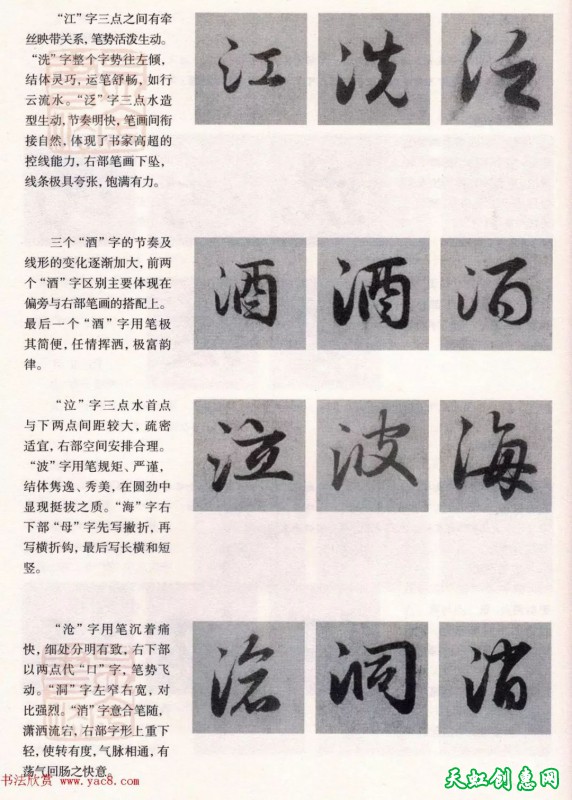 “江”字三点之间有牵
丝映带关系，笔势活泼生动。
“洗”字整个字势往左倾，
结体灵巧，运笔舒畅，如行
云流水。“泛”字三点水造
型生动，节奏明快，笔画间衔
接自然，体现了书家高超的
控线能力，右部笔画下坠，
线条极具夸张，饱满有力。
江 洗 泛
三个“酒”字的节奏及
线形的变化逐渐加大，前两
个“酒”字区别主要体现在
偏旁与右部笔画的搭配上。
最后一个“酒”字用笔极
其简便，任情挥洒，极富韵
律。
酒 酒 酒
“泣”字三点水首点
与下两点间距较大，疏密
适宜，右部空间安排合理。
“波”字用笔规矩、严谨，
结体隽逸、秀美，在圆劲中
显现挺拔之质。“海”字右
下部“母”字先写撇折，再
写横折钩，最后写长横和短
竖。
泣 波 海
“沧”字用笔沉着痛
快，细处分明有致，右下部
以两点代“口”字，笔势飞
动。“洞”字左窄右宽，对
比强烈。“消”字意合笔随，
潇洒流宕，右部字形上重下
轻，使转有度，气脉相通，有
荡气回肠之快意。
沧 洞 消
书法欣赏 www.yac8.com
天虹创惠网